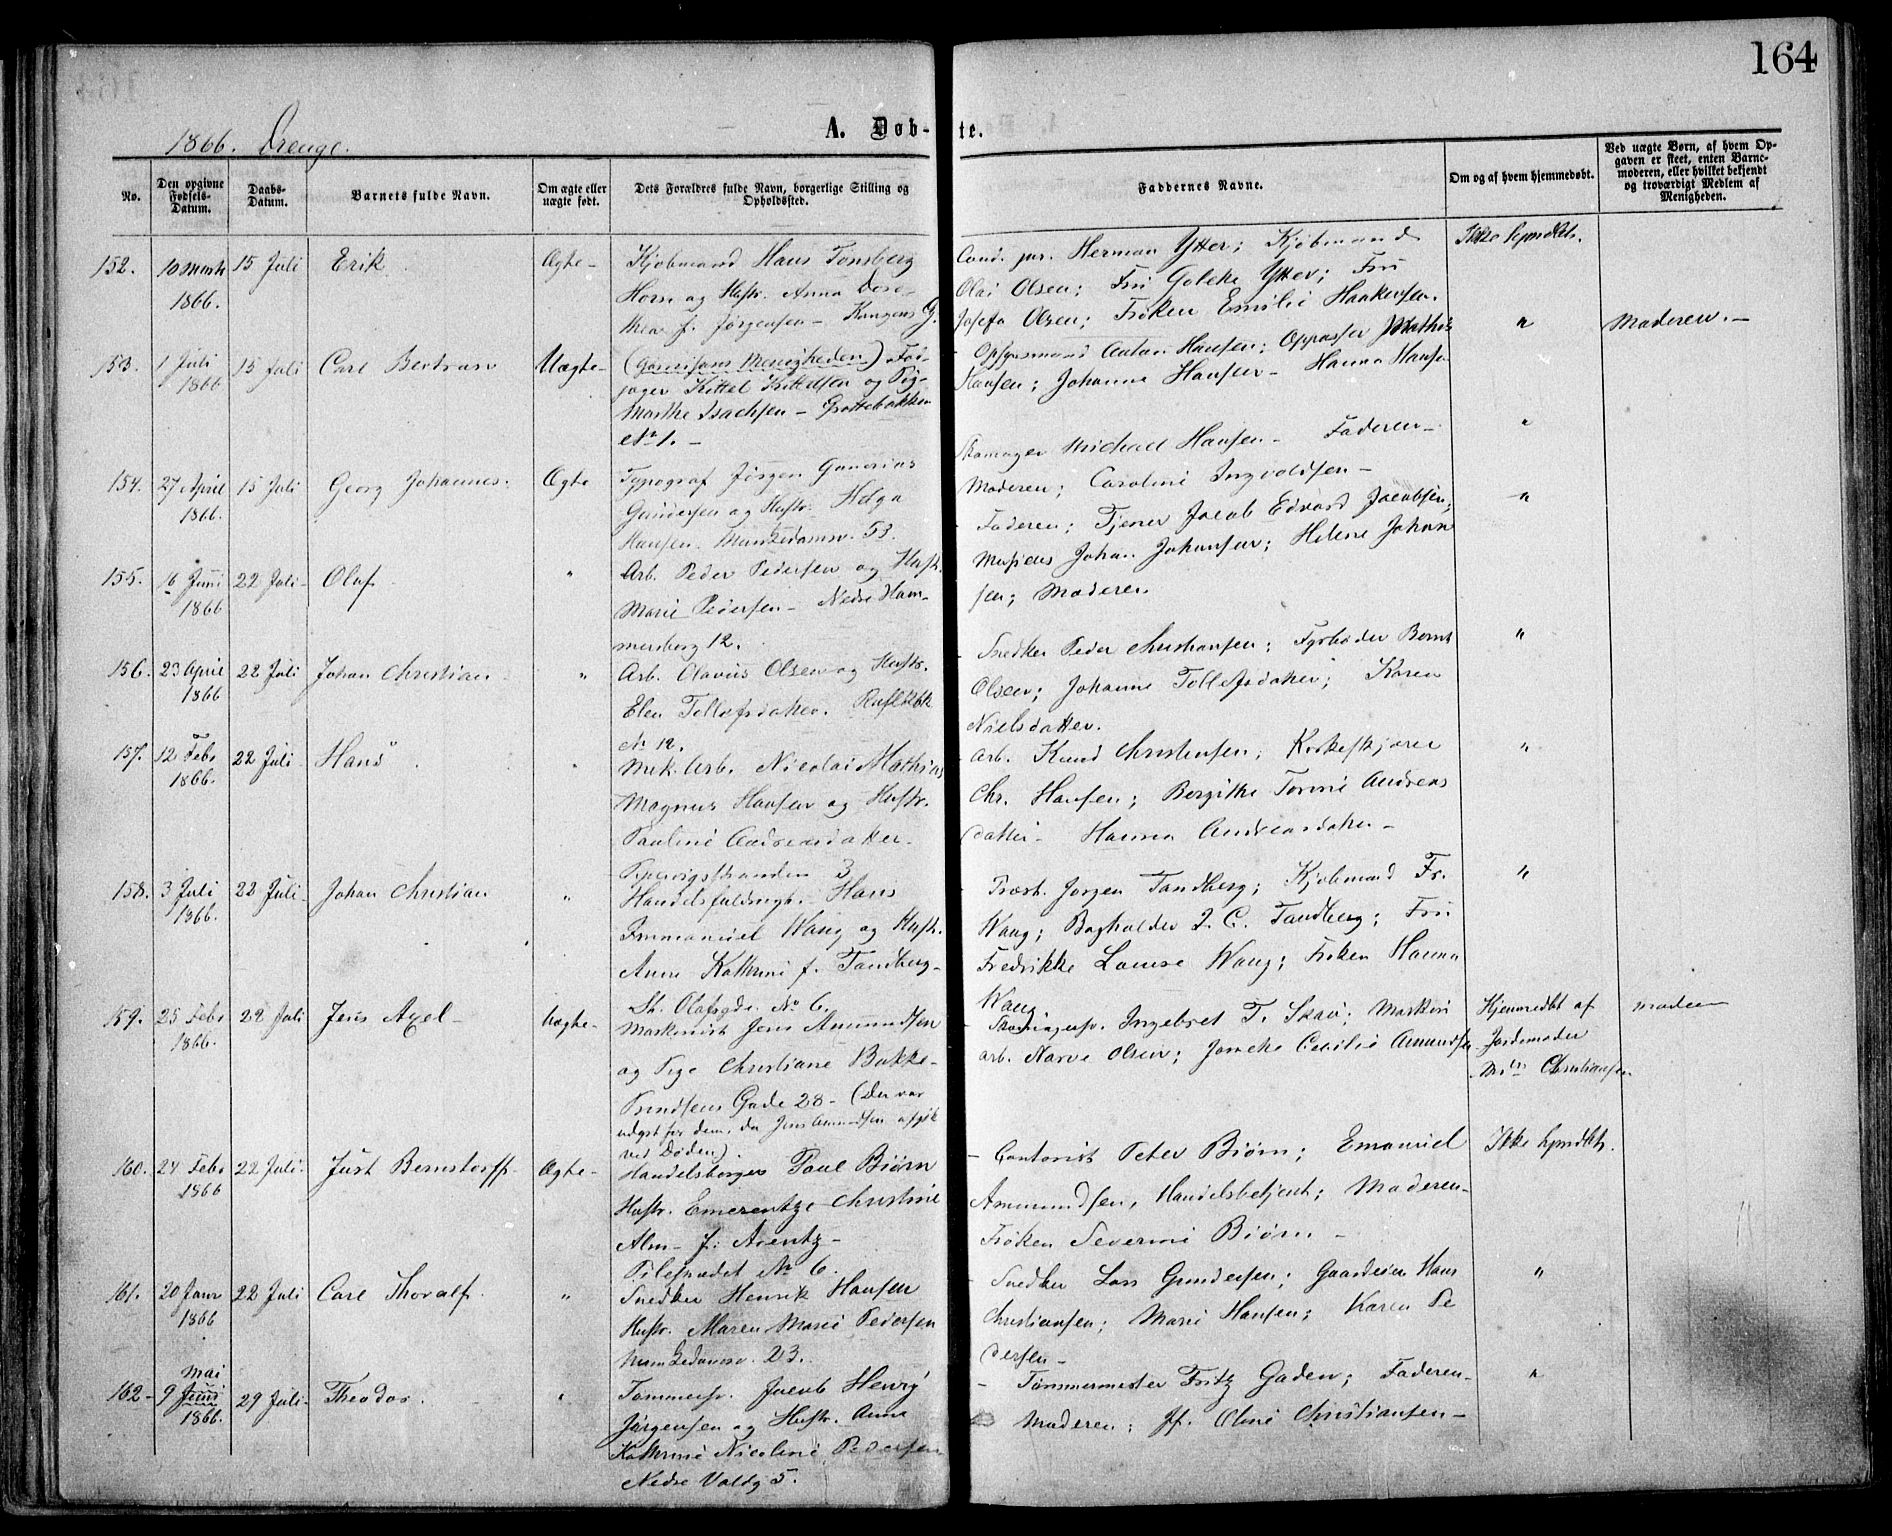 164
1866. Drenge.
A. Døb-te.
No.
Den opgivne
Fødsels-
Datum.
Daabs-
Datum.
Barnets fulde Navn.
Om ægte eller
uægte født.
Dets Forældres fulde Navn, borgerlige Stilling og
Opholdssted.
Faddernes Navne.
Om og af hvem hjemmedøbt.
Ved uægte Børn, af hvem Op-
gaven er skeet, enten Barne-
moderen, eller hvilket bekjendt
og troværdigt Medlem af
Menigheden.
152. 10 Marts 15 Juli Erik Ægte-
1866.
Kjøbmand Hans Tønsberg
Horn og Hustr. Anna Doro-
thea f. Jørgensen - Kongens G.
Cand. jur. Herman Ytter; Kjøbmand
Olai Olsen; Fru Goleke Ytter; Fru
Josefa Olsen; Frøken Emilie Haakensen.
Ikke hjmdbt.
153. 1 Juli 15 Juli Carl Bertran Uægte-
1866
(Garnisons Menigheden) Fod-
jæger Kittel Kittelsen og Pig-
Marthe Isachsen - Grottebakken
No 1. -
- Opsynsmand Anton Hansen; Oppasser Mathis
Hansen; Johanne Hansen - Hanna Hansen
"
Moderen. -
154. 27 April 15 Juli Georg Johannes. Ægte
1866.
Typograf Jørgen Gunerius
Gundersen og Hustr. Helga
Hansen. Munkedamsv. 53.
Skomager Michael Hansen - Faderen -
Moderen; Caroline Ingvoldsen -
"
155. 16 Juni 22 Juli- Olaf. "
1866
Arb. Peder Pedersen og Hustr.
Marie Pedersen - Nedre Ham-
mersberg 12.
- Faderen; Tjener Jacob Edvard Jacobsen;
Musicus Johan Johansen; Helene Johan
sen; Moderen.
"
156. 23 April 22 Juli Johan Christian "
1866
Arb. Olavus Olsen og Hustr.
Elen Tollefsdatter. Rufløkk
No 12.
- Snedker Peder Christiansen; Fyrbøder Bernt
Olsen; Johanne Tollefsdatter; Karen
Nielsdatter.
"
157. 12 Febr 22 Juli Hans "
1866.
Mek. Arb. Nicolai Mathias
Magnus Hansen og Hustr.
Pauline Andreasdatter.
Pipervigsstranden 3
Arb. Knud Christensen; Korkeskjærer
Chr. Hansen; Bergithe Torine Andreas
datter - Hanna Andreasdatter -
"
158. 3 Juli 22 Juli- Johan Christian "
1866.
Handelsfuldmægt. Hans
Immanuel Wang og Hustr.
Anne Kathrine f. Tandberg -
St. Olafsgd. No 6.
- Prost. Jørgen Tandberg; Kjøbmand Fr.
Wang; Bogholder J. C. Tandberg; Fru
Fredrikke Louise Wang; Frøken Hanna
Wang
"
159. 25 Febr 22 Juli Jens Axel - Uægte-
1866.
Maskinist Jens Amundsen
og Pige Christiane Bakke -
Trondsens Gade 28 - (Der var
udlyst for dem, da Jens Amundsen afgik
ved Døden).
- Skomagersv. Ingebret T. Skau; Maskin
arb. Narve Olsen; Josecke Cecilie Amundsen
Hjemmedbt af
Jordemoder
Md. Christiansen
moderen
160. 24 Febr 22 Juli- Just Bernstorff - Ægte-
1866
Handelsborger Poul Biørn
Hustr. Emerentze Christine
Alm - f. Arentz -
Pilestrædet No 6.
- Contorist Peter Biørn; Emanuel
Ammundsen, Handelsbetjent; Moderen -
Frøken Severine Biørn -
Ikke hjmdbt.
161. 20 Janr 22 Juli Carl Thoralf. "
1866
Snedker Henrik Hansen
Hustr. Maren Marie Pedersen
Munkedamsv. 23.
- Snedker Lars Gundersen; Gaardeier Hans
Christiansen; Marie Hansen; Karen Pe
dersen -
"
Mai
162- 9 Juni 29 Juli- Theodor. "
1866.
Tømmersv. Jacob Henry
Jørgensen og Hustr. Anna
Kathrine Nicoline Pedersen
Nedre Voldg 5.
- Tømmermester Fritz Gaden; Faderen -
Moderen; Jf. Oline Christiansen -
"